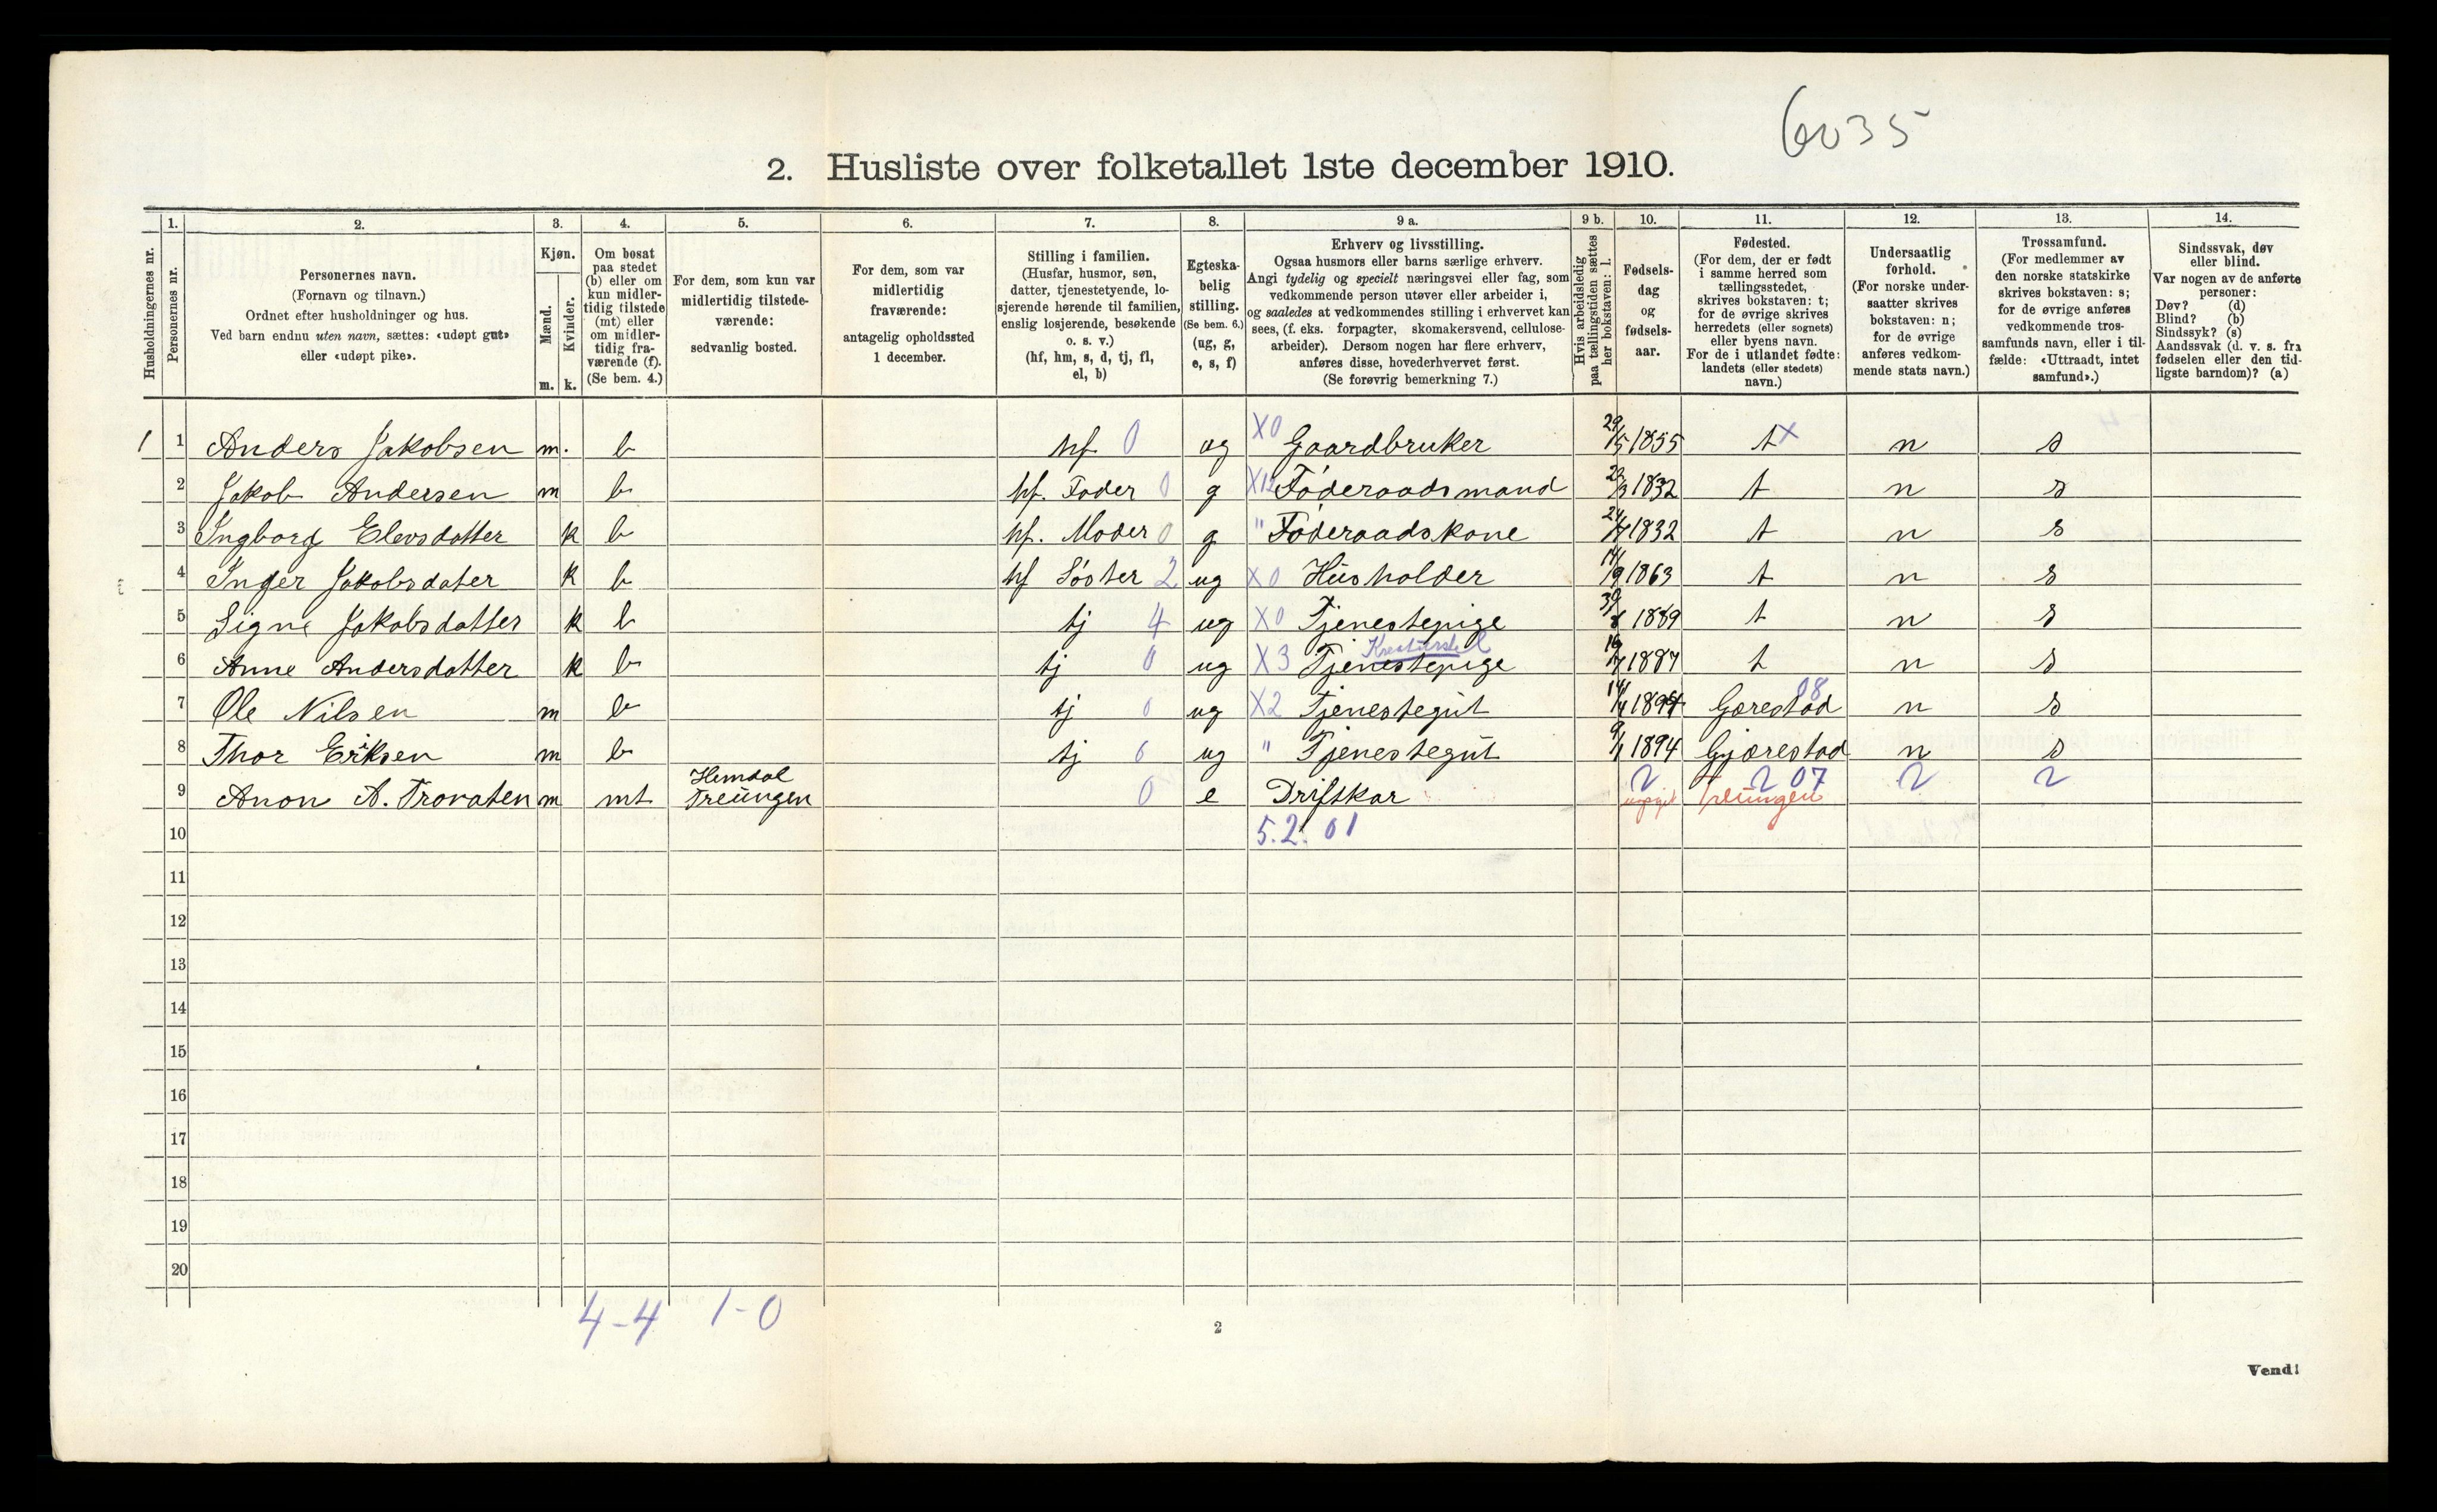 6035
2. Husliste over folketallet 1ste december 1910.
Husholdningernes nr.
1. Personernes nr.
2. Personernes navn.
(Fornavn og tilnavn.)
Ordnet efter husholdninger og hus.
Ved barn endnu uten navn, sættes: «udøpt gut»
eller «udøpt pike».
3. Kjøn.
Mænd. m.
Kvinder. k.
4. Om bosat
paa stedet
(b) eller om
kun midler-
tidig tilstede
(mt) eller
om midler-
tidig fra-
værende (f).
(Se bem. 4.)
5. For dem, som kun var
midlertidig tilstede-
værende:
sedvanlig bosted.
6. For dem, som var
midlertidig
fraværende:
antagelig opholdssted
1 december.
7. Stilling i familien.
(Husfar, husmor, søn,
datter, tjenestetyende, lo-
sjerende hørende til familien,
enslig losjerende, besøkende
o. s. v.)
(hf, hm, s, d, tj, fl,
el, b)
8. Egteska-
belig
stilling.
(Se bem. 6.)
(ug, g,
e, s, f)
9 a. Erhverv og livsstilling.
Ogsaa husmors eller barns særlige erhverv.
Angi tydelig og specielt næringsvei eller fag, som
vedkommende person utøver eller arbeider i,
og saaledes at vedkommendes stilling i erhvervet kan
sees, (f. eks. forpagter, skomakersvend, cellulose-
arbeider). Dersom nogen har flere erhverv,
anføres disse, hovederhvervet først.
(Se forøvrig bemerkning 7.)
9 b. Hvis arbeidsledig
paa tællingstiden sættes
her bokstaven: l.
10. Fødsels-
dag
og
fødsels-
aar.
11. Fødested.
(For dem, der er født
i samme herred som
tællingsstedet,
skrives bokstaven: t;
for de øvrige skrives
herredets (eller sognets)
eller byens navn.
For de i utlandet fødte:
landets (eller stedets)
navn.)
12. Undersaatlig
forhold.
(For norske under-
saatter skrives
bokstaven: n;
for de øvrige
anføres vedkom-
mende stats navn.)
13. Trossamfund.
(For medlemmer av
den norske statskirke
skrives bokstaven: s;
for de øvrige anføres
vedkommende tros-
samfunds navn, eller i til-
fælde: «Uttraadt, intet
samfund».)
14. Sindssvak, døv
eller blind.
Var nogen av de anførte
personer:
Døv? (d)
Blind? (b)
Sindssyk? (s)
Aandssvak (d. v. s. fra
fødselen eller den tid-
ligste barndom)? (a)
1 1 Anders Jakobsen m. b hf 0 ug X0 Gaardbruker 29/5 1855 t X n s
2 Jakob Andersen m b hf. Fader 0 g X12 Føderaadsmand 23/3 1832 t n s
3 Ingborg Elevsdatter k b hf. Moder 0 g " Føderaadskone 1832 t n s
4 Inger Jakobsdater k b hf Søster 2 ug X0 Husholder 14/9 1863 t n s
5 Signe Jakobsdatter k b tj 4 ug X0 Tjenestepige 1889 t n s
6 Anne Andersdatter k b tj 0 ug X3 Tjenestepige 1887 t n s
7 Ole Nilsen m b tj 0 ug X2 Tjenestegut Gærestad 08 n s
8 Thor Eriksen m b tj 0 ug " Tjenestegut 9/1 1894 Gjærestad n s
9 Anon A. Trovaten m mt Hemdal Treungen 0 e Driftskar 2 2 07 Treungen 2 2
10 5.2.01
11
12
13
14
15
16
17
18
19
20
4-4 1-0
2
Vend!